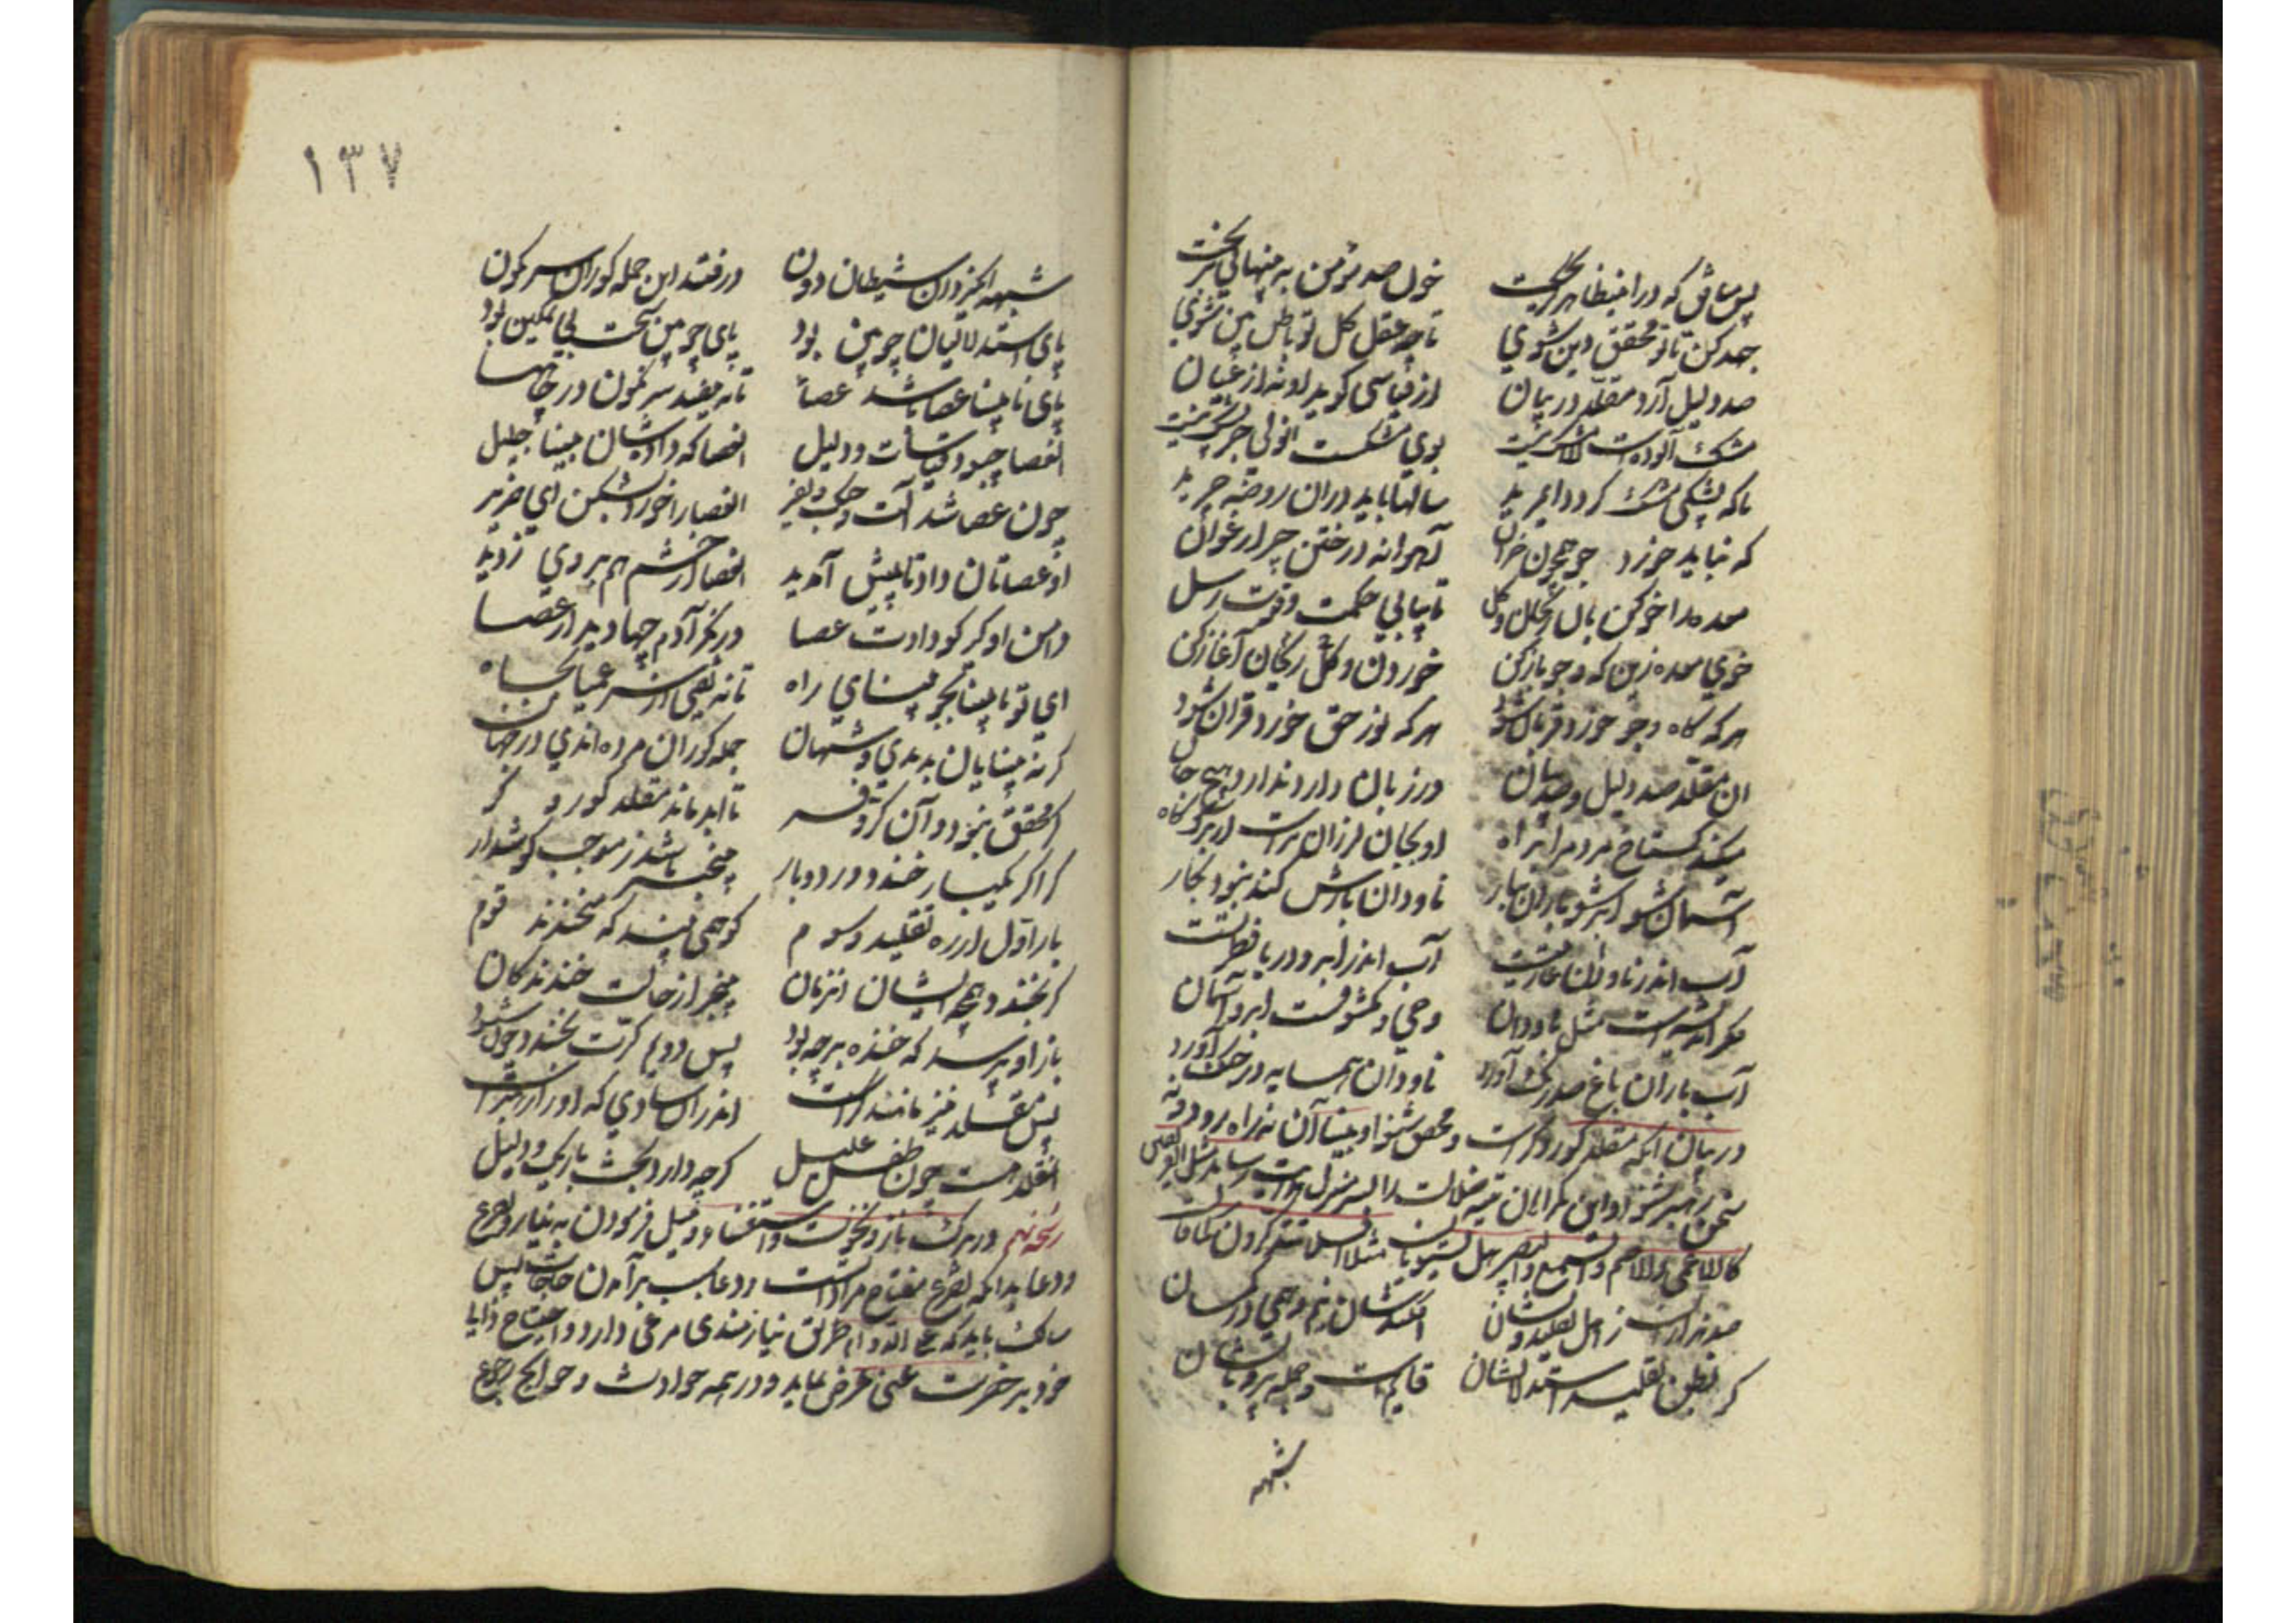 پس مناقق که در ظاهر گریخت خون صد مؤمن به پنهانی بریخت
جهد کن تا تو محقق دین شوی تا چو عقل کل تو باطن بین شوی
صد دلیل آرد مقلد در بیان از قیاسی گوید او نه از عیان
مشک آلوده است الا مشک نیست بوی مشکست ولی جز پشک نیست
تا که پشکی مشک گردد ای مرید سالها باید در آن روضه چرید
که نباید خورد جو همچون خران آهوانه در ختن چر ارغوان
معده را خو کن بدان ریحان و گل تا بیابی حکمت و قوت رسل
خوی معده زین که و جو باز کن خوردن و گل ریحان آغاز کن
هر که کاه و جو خورد قربان شود هر که نور حق خورد قرآن شود
ان مقلد صد دلیل و صد بیان در زبان دارد ندارد هیچ جان
میکند گستاخ مردم را براه او بجان لرزان ترست از برگ کاه
آسمان شو ابر شو باران ببار ناودان بارش کند نبود بکار
آب اندر ناودان عاریتست آب اندر ابر و دریا فطرتست
فکر اندیشه است مثل ناودان وحی و مکشوفست ابر و آسمان
آب باران باغ صد رنگ آورد ناودان همسایه در جنگ آورد
در بیان آنکه مقلد کور و کرست و محقق شنوا و بینا آن نه راه رود و نه
سخن رهبر شنود و این گمراهان تیه ضلالت را بسر منزل هدایت رساند مثل الفریقین
کالاعمی والاصم والبصیر والسمیع هل یستویان مثلا افلا تتذکرون
صد هزاران ز اهل تقلید و نشان افکندشان نیم وهمی در گمان
که بظن تقلید و استدلالشان قایمست و جمله پر و بالشان
شبهه
١٣٧
شبهه انگیزد آن شیطان دون در فتند این جمله کوران سرنگون
پای استدلالیان چوبین بود پای چوبین سخت بی تمکین بود
پای نابینا عصا باشد عصا تا نیفتد سرنگون در چاهها
آنعصا چبود قیاسات و دلیل آنعصا که دادشان بینا جلیل
چون عصا شد آلت جنگ و نفیر آنعصا را خورد بشکن ای ضریر
او عصاتان داد تا پیش آمدید آنعصا از خشم هم بر وی زدید
دامن او گیر کو دادت عصا در نگر آدم چها دید از عصا
ای تو نابینا بجو بینای راه تا نه یفتی از سر عمیا بچاه
گر نه بینایان بدندی و شهان جمله کوران مرده اندی در جهان
محقق نبود و آن کر و فر تا ابد ماند مقلد کور و کر
کر اگر یکبار خندد ور دو بار بیخبر باشد ز موجب گوشدار
بار اول از ره تقلید و سوم کو همی بیند که میخندند قوم
کر بخندد همچو ایشان آنزمان بیخبر از حالت خندندگان
باز او پرسد که خنده بر چه بود پس دوم کرت بخندد چون شنود
پس مقلد نیز مانند کرست اندر آن شادی که او را در سرست
آنمقلد هست چون طفل علیل گرچه دارد بحث باریک و دلیل
رشحه نهم در ترک ناز و نخوت و استغنا و میل فرمودن به نیاز و تضرع
و دعا بدانکه تضرع مفتاح مراداتست و دعا سبب برآمدن حاجات پس
سالک باید که علی الدوام طریق نیازمندی مرعی دارد و احتیاج
خود بر حضرت غنی عرض نماید و در همه حوادث و حوایج رجوع